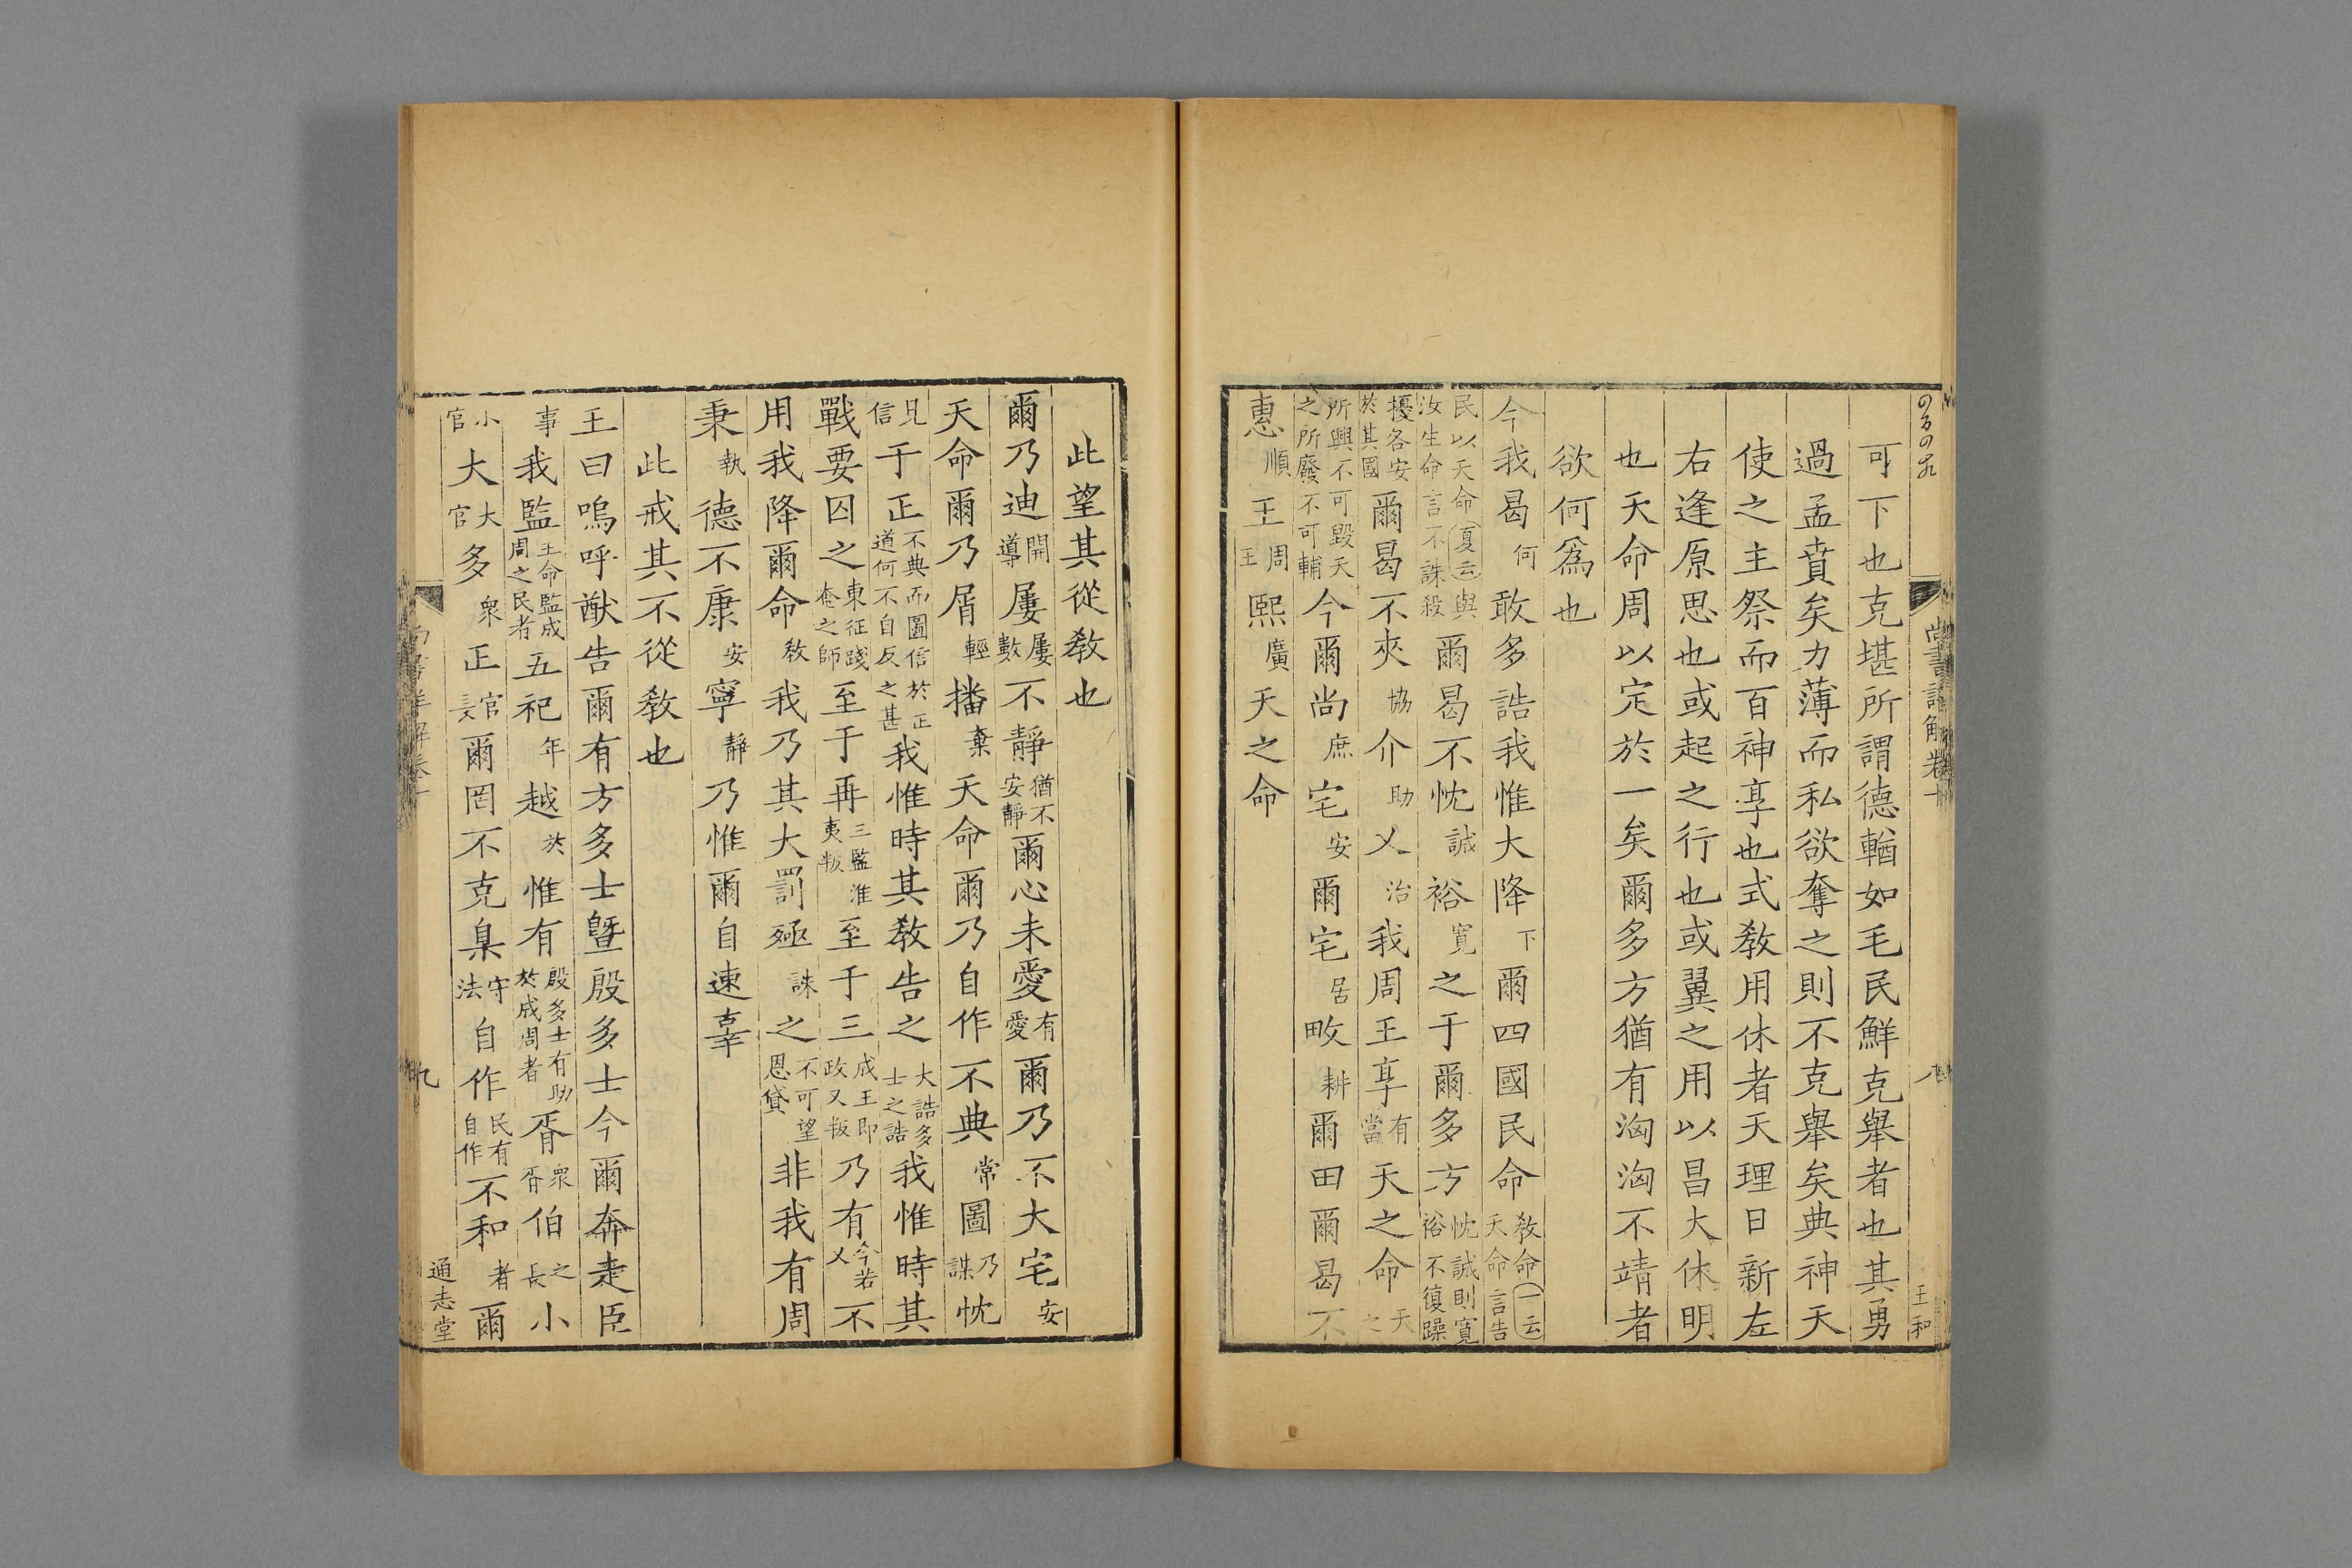 可下也克堪所謂德輶如毛民鮮克舉者也其勇
過孟賁矣力薄而私欲奪之則不克舉矣典神天
使之主祭而百神享也式教用休者天理日新左
右逢原思也或起之行也或翼之用以昌大休明
也天命周以定於一矣爾多方猶有洶洶不靖者
欲何爲也
今我曷何敢多誥我惟大降下爾四國民命教命一云天命言告
民以天命夏云與汝生命言不誅殺爾曷不忱誠裕寬之于爾多方忱誠則寬裕不復躁
擾各安於其國爾曷不夾協介助乂治我周王享有當天之命天之
所興不可毀天之所廢不可輔今爾尚庶宅安爾宅居畋耕爾田爾曷不
惠順王周王熙廣天之命
王和
此望其從教也
爾乃迪開導屢屢數不靜猶不安靜爾心未愛有愛爾乃不大宅安
天命爾乃屑輕播棄天命爾乃自作不典常圖乃謀忱
見信于正不典而圖信於正道何不自反之甚我惟時其教告之大誥多士之誥我惟時其
戰要囚之東征踐奄之師至于再三監淮夷叛至于三成王即政又叛乃有今若乂不
用我降爾命教我乃其大罰殛誅之不可望恩貸非我有周
秉執德不康安寧靜乃惟爾自速辜
此戒其不從教也
王曰嗚呼猷告爾有方多士曁殷多士今爾奔走臣
事我監王命監成周之民者五祀年越於惟有殷多士有助於成周者胥眾胥伯之長小
小官大大官多眾正官長爾罔不克臬守法自作民有自作不和者爾
九
通志堂